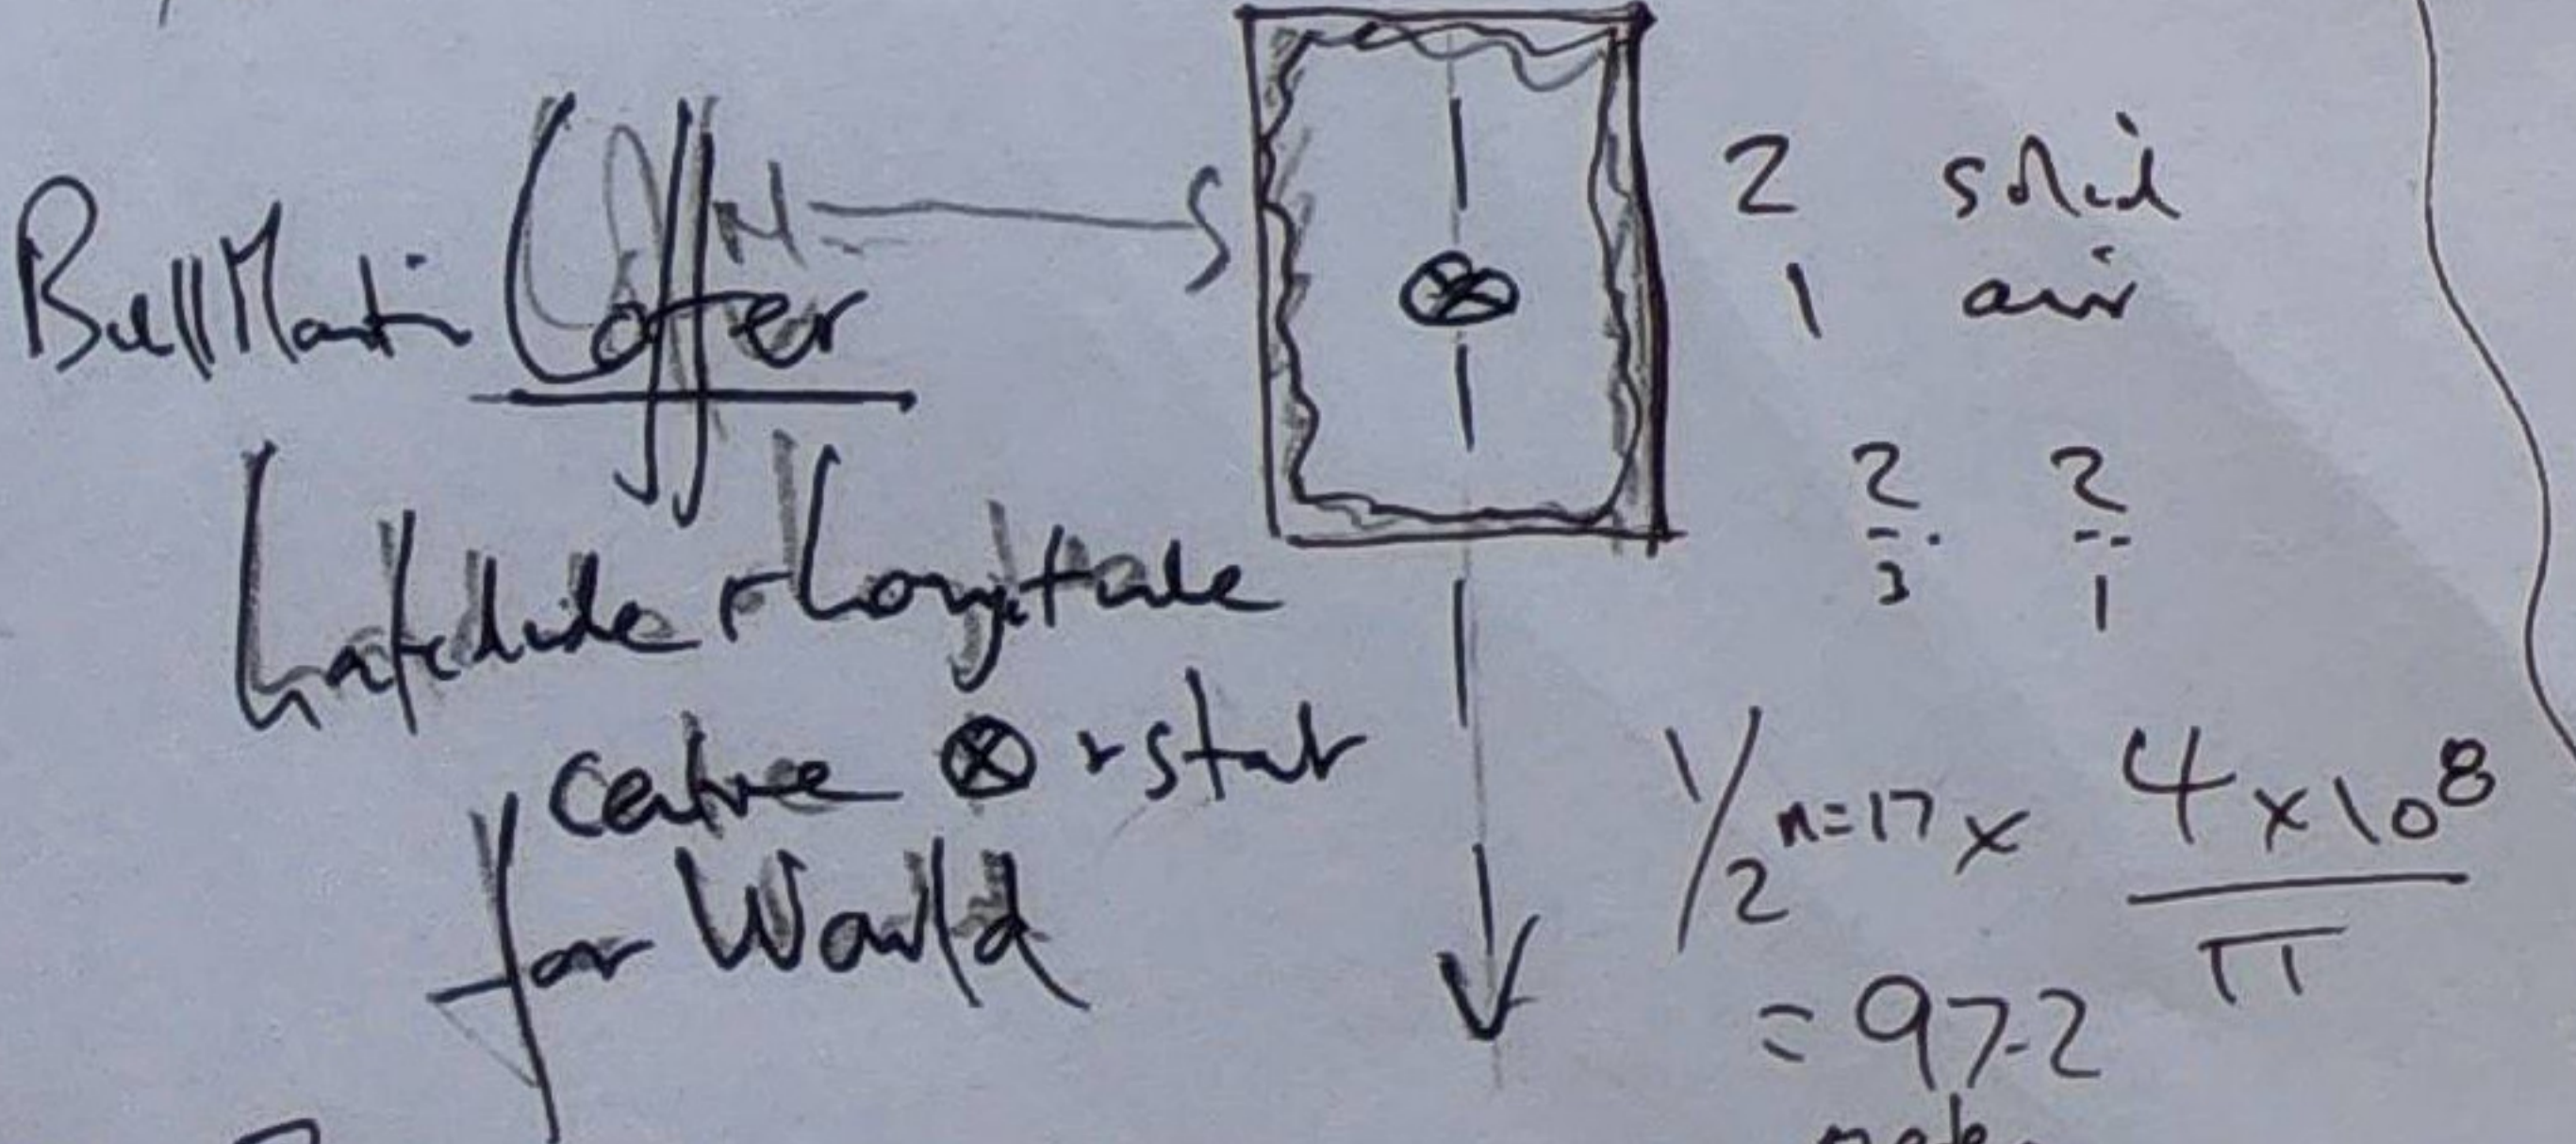 N S
Bull Martin Coffer
Latitude + Longitude
centre ⊗ + start
for World
2 solid
1 air
2/3 2/1
1/2 n=17 x 4 x 10^8 / π
= 97.2